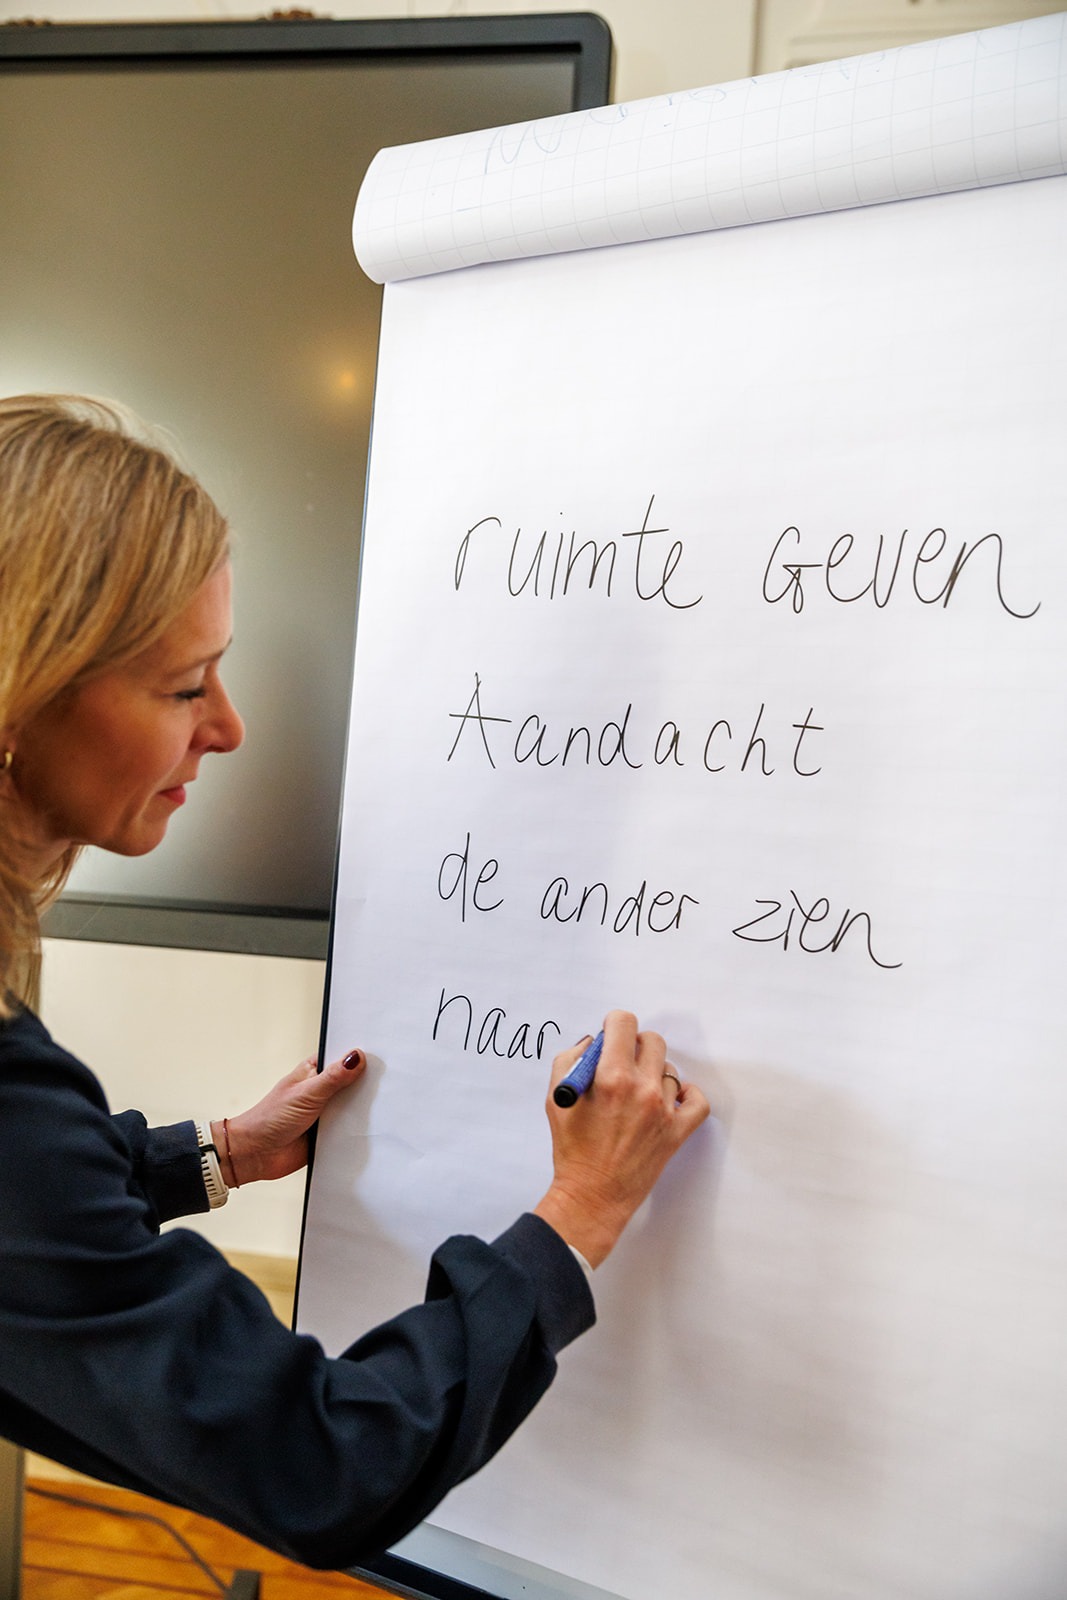 ruimte Geven
Aandacht
de ander zien
naar